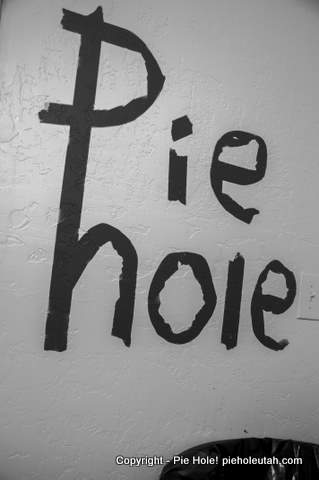 Pie
hole
Copyright - Pie Hole! pieholeutah.com